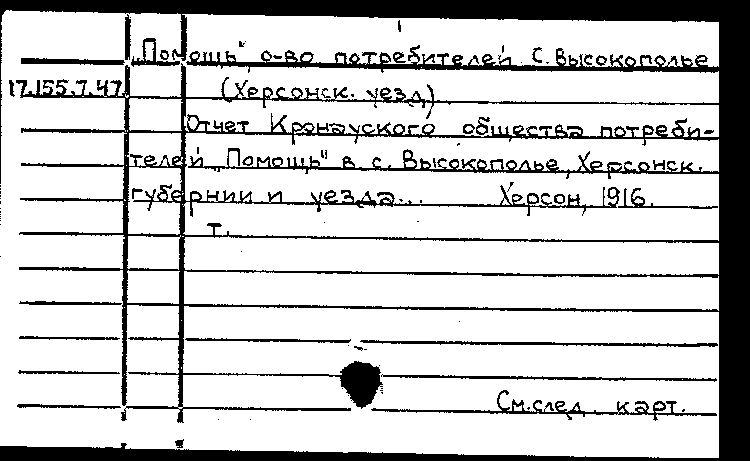 „Помощь" о-во потребителей С. Высокополье
17.155.7.47. (Херсонск. уезд)
Отчет Кронауского общества потреби-
телей „Помощь" в с. Высокополье, Херсонск.
губернии и уезда... Херсон, 1916.
т.
См. след. карт.